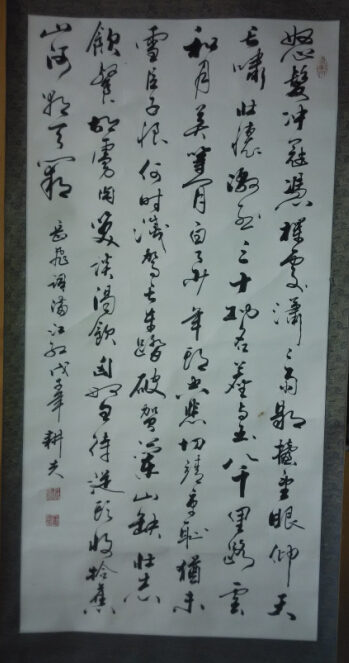 怒髮冲冠憑欄處瀟〻雨歇抬望眼仰天
長嘯壯懷激烈三十功名塵與土八千里路雲
和月莫等閒白了少年頭空悲切靖康恥猶未
雪臣子恨何時滅駕長車踏破賀蘭山缺壯志
飢餐胡虜肉笑談渴飲匈奴血待從頭收拾舊
山河朝天闕
岳飛詞滿江紅戊耕夫